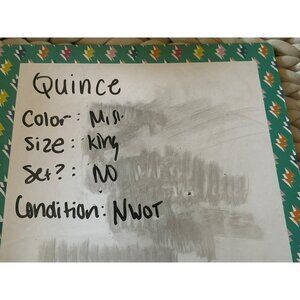 Quince
Color:
Size: King
Set?: NO
Condition: NWOT